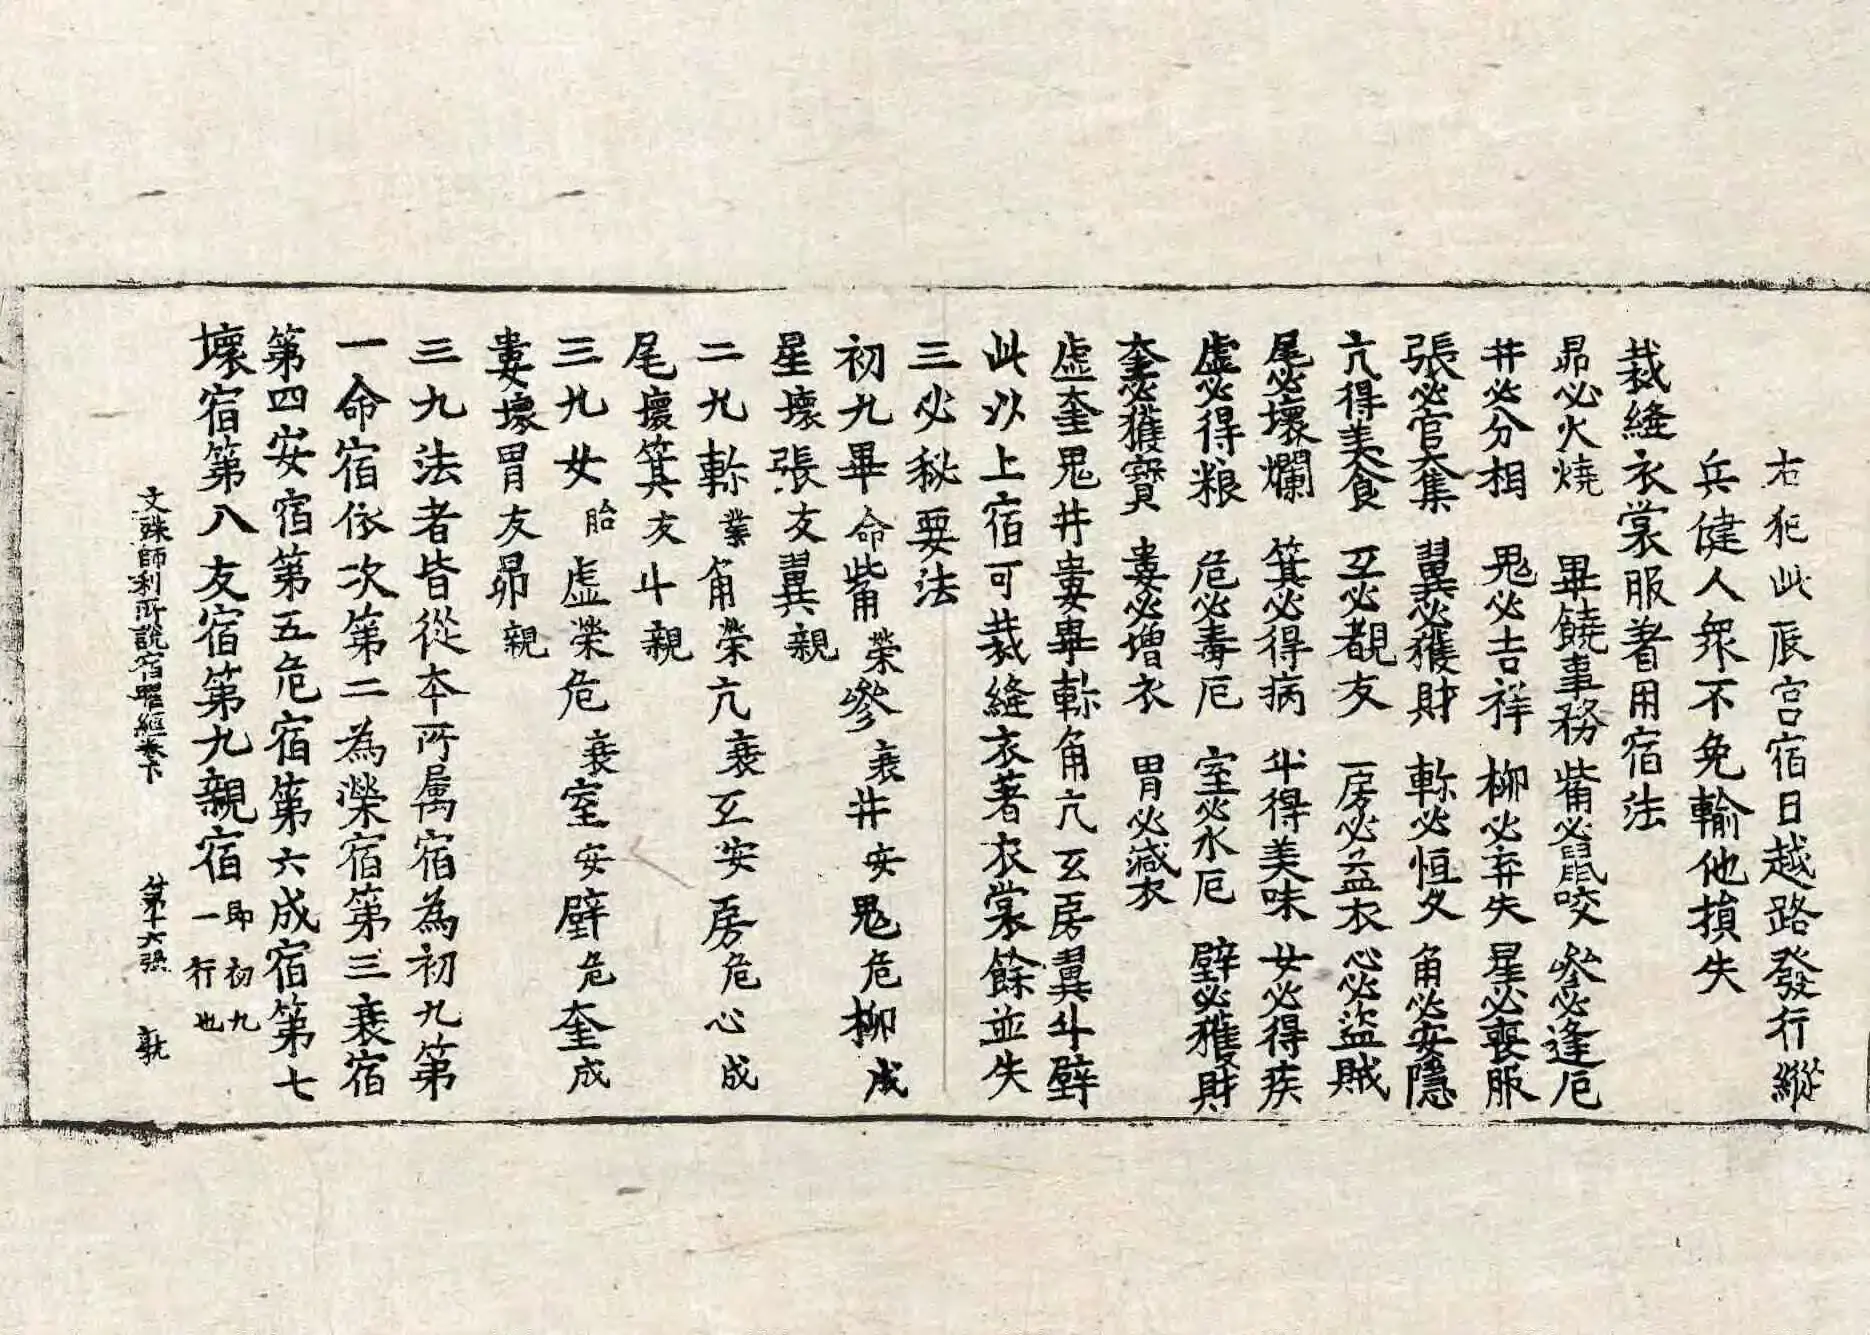 右犯此辰宮宿日越路發行縱
兵健人衆不免輸他損失
裁縫衣裳服著用宿法
昴必火燒 畢饒事務 觜必鼠咬 參必逢厄
井必分相 鬼必吉祥 柳必弃失 星必喪服
張必官夭集 翼必獲財 軫必恒久 角必安隱
亢得美食 互必覩友 房必益衣 心必盜賊
尾必壞爛 箕必得病 斗得美味 女必得疾
虛必得粮 危必毒厄 室必水厄 壁必獲財
奎必獲寶 婁必增衣 胃必減衣
虛奎鬼井婁畢軫角亢互房翼斗壁
此以上宿可裁縫衣著衣裳餘並失
三必秘要法
初九畢命觜榮參衰井安鬼危柳成
星壞張友翼親
二九軫業角榮亢衰互安房危心成
尾壞箕友斗親
三九女胎虛榮危衰室安壁危奎成
婁壞胃友昴親
三九法者皆從本所属宿為初九第
一命宿依次第二為榮宿第三衰宿
第四安宿第五危宿第六成宿第七
壞宿第八友宿第九親宿即初九一行也
文殊師利所說宿曜經卷下 第十六張 執